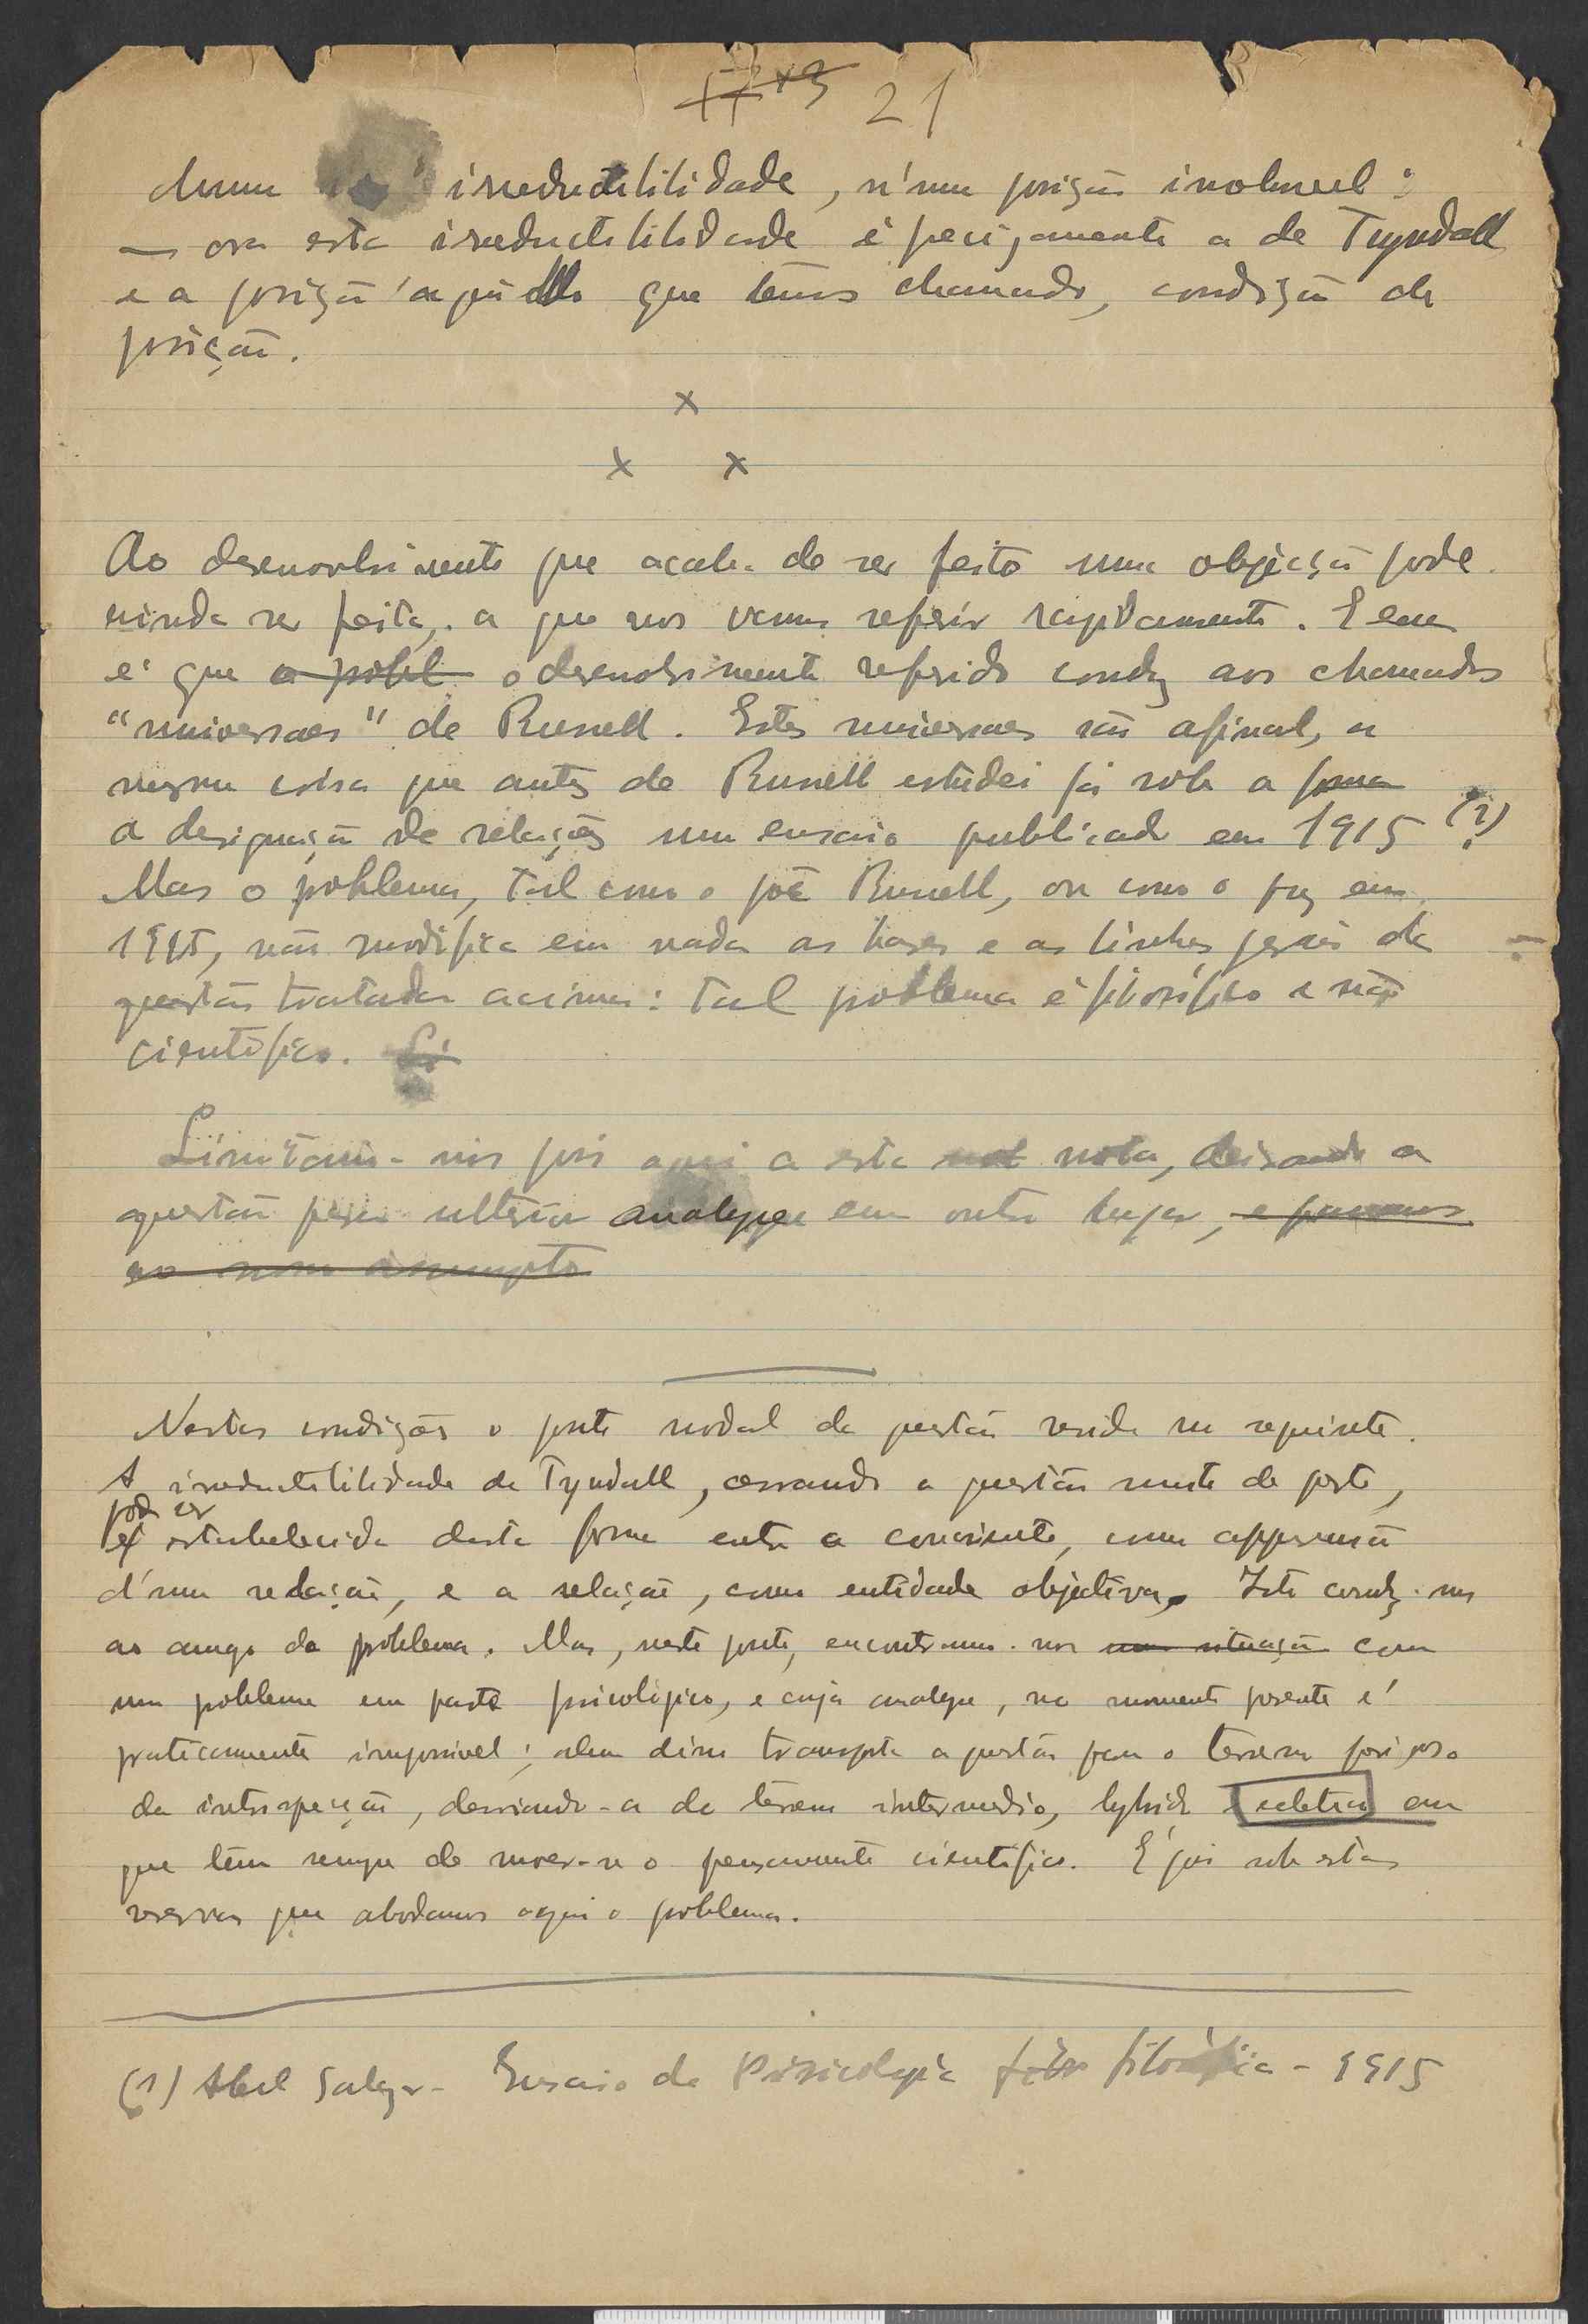 21
numa irreductibilidade, n'uma posição insoluvel:
— ora esta irreductibilidade é precisamente a de Tyndall
e a posição aquillo que temos chamado, condição de
posição.
x
x x
Ao desenvolvimento que acaba de ser feito uma objecção pode
ainda ser feita, a que nos vamos referir rapidamente. E essa
é que a probl o desenvolvimento referido conduz aos chamados
"universaes" de Russell. Estes universaes são afinal, a
mesma coisa que antes de Russell estudei já sob a forma
a designação de relações num ensaio publicado em 1915 (?)
Mas o problema, tal como o põe Russell, ou como o fiz em
1915, não modifica em nada as bases e as linhas geraes da
questão tratada acima: tal problema é filosófico e não
cientifico.
Limitamo-nos pois aqui a esta not nota, deixando a
questão para ulterior analyse em outro lugar, e passemos
ao nosso assumpto
Nestas condições o ponto nodal da questão reside no seguinte.
A irreductibilidade de Tyndall, cerrando a questão muito de perto,
pode ser
é estabelecida desta forma entre a consciente, como appreensão
d'uma relação, e a relação, como entidade objectiva. Isto conduz-nos
ao amago do problema. Mas, neste ponto, encontramo-nos uma situação com
um problema em parte psicologico, e cuja analyse, no momento presente é
praticamente impossivel; alem disso transporta a questão para o terreno perigoso
da introspecção, desviando-a do terreno intermedio, hybrido em
que tem sempre de mover-se o pensamento cientifico. É pois sob estas
reservas que abordamos aqui o problema.
(1) Abel Salazar - Ensaio de Psicologia filosófica - 1915